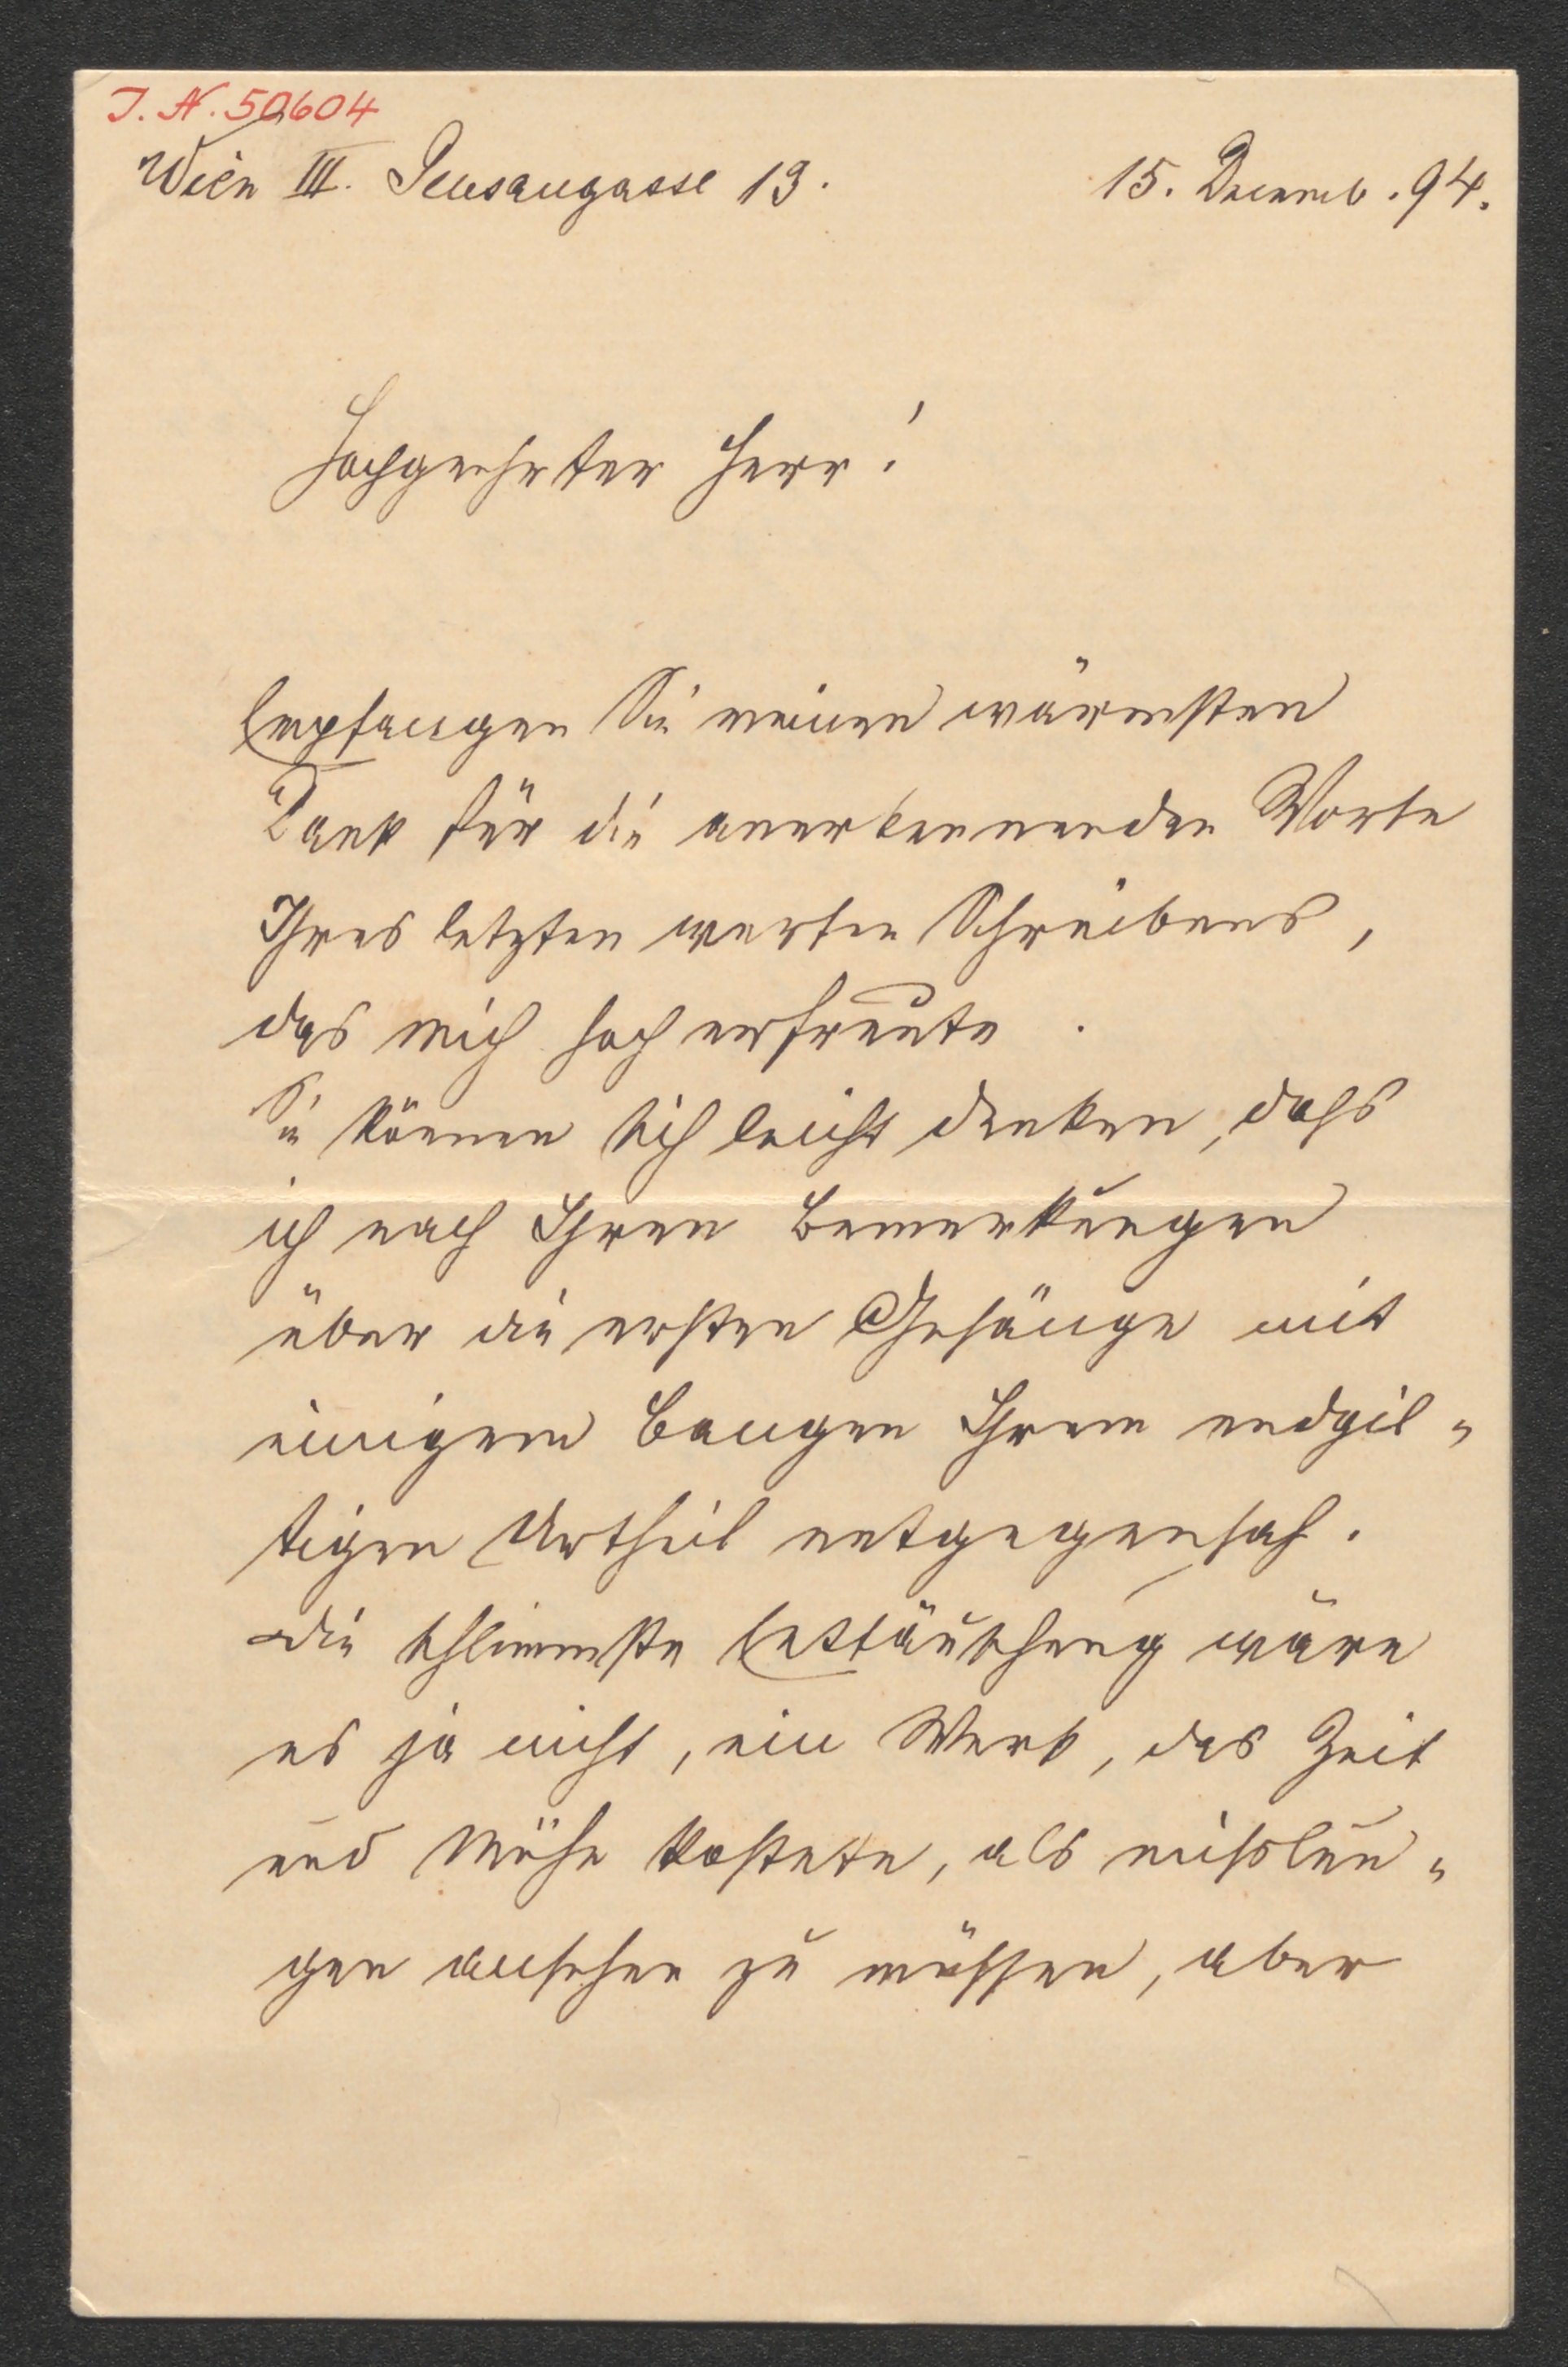 I. N. 50604
Wien III. Seusaugasse 13. 15. Decemb. 94.
Hochgeehrter Herr!
Empfangen Sie meinen wärmsten
Dank für die anerkennenden Worte
Ihres letzten werten Schreibens,
das mich hoch erfreute.
Sie können sich leicht denken, dass
ich nach Ihren Bemerkungen
über die ersten Gesänge mit
einigem Bangen Ihrem endgil-
tigen Urtheil entgegensah.
Die schlimmste Enttäuschung wäre
es ja nicht, ein Werk, das Zeit
und Mühe kostete, als misslun-
gen ansehen zu müssen, aber